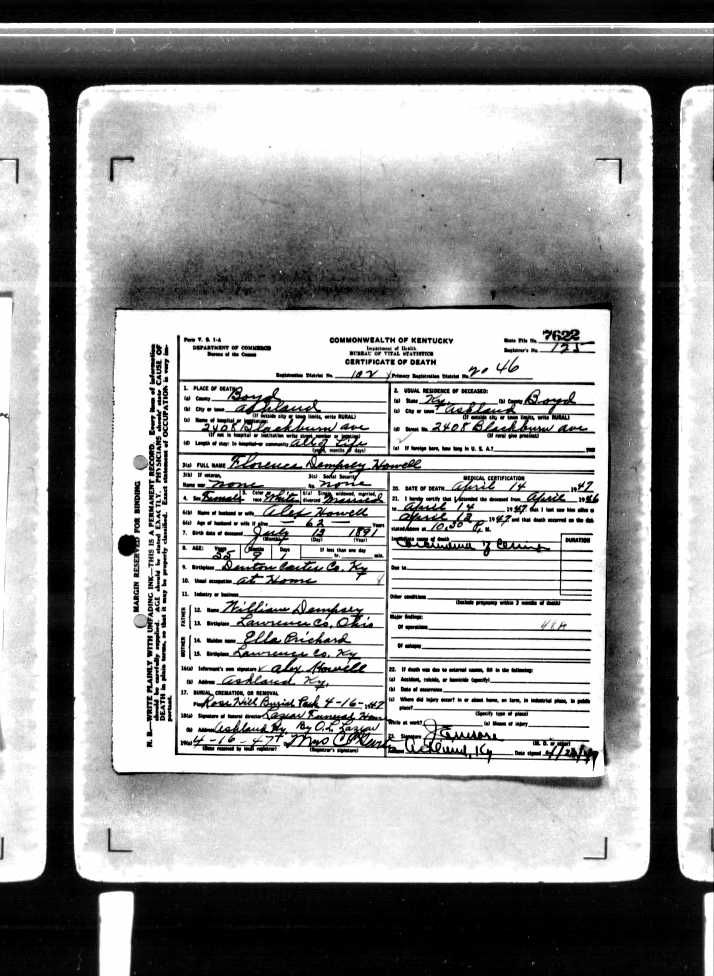 Form V. S. 1-A
DEPARTMENT OF COMMERCE
Bureau of the Census
COMMONWEALTH OF KENTUCKY
Department of Health
BUREAU OF VITAL STATISTICS
CERTIFICATE OF DEATH
State File No. 7622
Registrar's No. 125
Registration District No. 102 Primary Registration District No. 2046
N. B.—WRITE PLAINLY WITH UNFADING INK—THIS IS A PERMANENT RECORD. Every item of information
should be carefully supplied. AGE should be stated EXACTLY. PHYSICIANS should state CAUSE OF
DEATH in plain terms, so that it may be properly classified. Exact statement of OCCUPATION is very im-
portant.
MARGIN RESERVED FOR BINDING
1. PLACE OF DEATH
(a) County Boyd
(b) City or town Ashland
(If outside city or town limits, write RURAL)
(c) Name of hospital or institution:
2408 Blackburn ave
(If not in hospital or institution write street number or location)
(d) Length of stay: In hospital or community all of Life
(years, months or days)
2. USUAL RESIDENCE OF DECEASED:
(a) State Ky (b) County Boyd
(c) City or town Ashland
(If outside city or town limits, write RURAL)
(d) Street No. 2408 Blackburn ave
(If rural give precinct)
(e) If foreign born, how long in U. S. A.? years
3(a) FULL NAME Florence Dempsey Howell
3(b) If veteran,
Name war none
3(c) Social Security
No. none
4. Sex Female 5. Color or race White 6(a) Single, widowed, married, divorced Married
6(b) Name of husband or wife Alex Howell
6(c) Age of husband or wife if alive 62 Years
7. Birth date of deceased July 13 1891
(Month) (Day) (Year)
8. AGE: Years Months Days If less than one day
55 9 1 hr. min.
9. Birthplace Denton Carter Co. Ky
10. Usual occupation at Home
11. Industry or business
FATHER
12. Name William Dempsey
13. Birthplace Lawrence Co, Ohio
MOTHER
14. Maiden name Ella Prichard
15. Birthplace Lawrence Co. Ky
16(a) Informant's own signature Alex Howell
(b) Address Ashland, Ky.
17. BURIAL, CREMATION, OR REMOVAL
Place Rose Hill Burial Park 4-16-1947
18(a) Signature of funeral director Lazear Funeral Home
(b) Address Ashland Ky. By O. L. Lazear
19(a) 4-16-47 Mrs C.
(Date received by local registrar) (Registrar's signature)
MEDICAL CERTIFICATION
20. DATE OF DEATH April 14 1947
21. I hereby certify that I attended the deceased from April 1946
to April 14 1947 that I last saw him alive on
April 12 1947 and that death occurred on the date
stated above at 10:30 P. M.
Immediate cause of death
DURATION
Due to
Other conditions
(Include pregnancy within 3 months of death)
Major findings:
Of operations
Of autopsy
22. If death was due to external causes, fill in the following:
(a) Accident, suicide, or homicide (specify)
(b) Date of occurrence
(c) Where did injury occur? in or about home, on farm, in industrial place, in public
place?
(Specify type of place)
While at work? (e) Means of injury
23. Signature
(M. D. or other)
Ashland, Ky Date signed